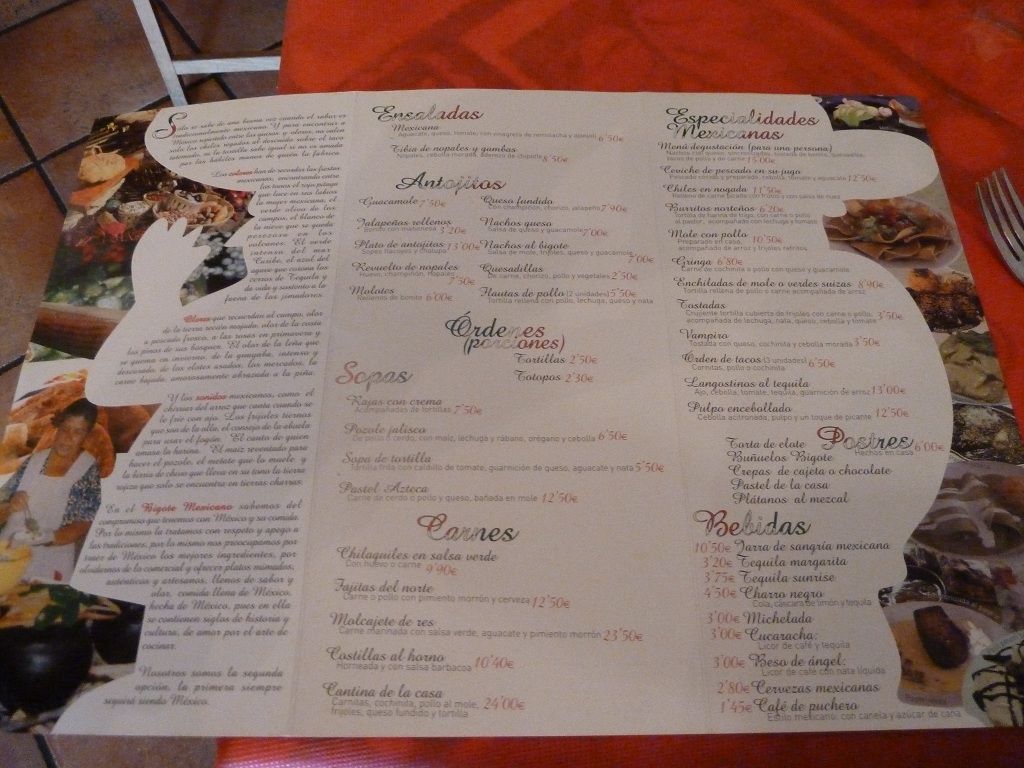 Solo se sabe de una buena vez cuando el sabor es
tradicionalmente mexicano. Y para encontrar a
México repartido entre los guisos y olores, no valen
solo los chiles regados al descuido sobre el taco
ni la tortilla sabe igual si no es amada
por las hábiles manos de quién la fabrica.
Los colores han de recordar las fiestas
mexicanas, encontrando entre
las tunas el rojo pitaya
que luce en sus labios
la mujer mexicana, el
verde olivo de los
campos, el blanco de
la nieve que se queda
perenne en los
volcanes. El verde
intenso del mar
Caribe, el azul del
agave que corona las
tierras de Tequila y
da vida y sustento a la
faena de los jimadores.
Olores que recuerdan al campo, olor
de la tierra recién mojada, olor de la costa
a pescado fresco, a las rosas en primavera y
los pinos de sus bosques. El olor de la leña que
se quema en invierno, de la guayaba, intenso y
descarado, de los elotes asados, los mercados, la
carne bajada, amorosamente abrazada a la piña.
Y los sonidos mexicanos, como el
chirriar del arroz que canta cuando se
le fríe con ajo. Los frijoles tiernos
que son de la olla, el consejo de la abuela
para usar el fogón. El canto de quien
amasa la harina. El maíz reventado para
hacer el pozole, el metate que lo muele, y
la lluvia de churo que lleva en su tono la tierra
rojiza que solo se encuentra en tierras charras.
En el Bigote Mexicano sabemos del
compromiso que tenemos con México y su comida.
Por lo mismo la tratamos con respeto y apego a
las tradiciones, por lo mismo nos preocupamos por
traer de México los mejores ingredientes, por
olvidarnos de lo comercial y ofrecer platos mimados,
auténticos y artesanos, llenos de sabor y
olor, comida llena de México,
hecha de México, pues en ella
se contienen siglos de historia y
cultura, de amor por el arte de
cocinar.
Nosotros somos la segunda
opción, la primera siempre
seguirá siendo México.
Ensaladas
Mexicana
Aguacate, queso, tomate, con vinagreta de remolacha y 6'50€
Tibia de nopales y gambas
Nopales, cebolla morada, aderezo de chipotle 8'50€
Antojitos
Guacamole 7'50€
Jalapeños rellenos
3'20€
Plato de antojitos 13'00€
Sopes nachos y chutapo
Revuelto de nopales
Huevo, champiñón, nopales 7'50€
Molotes
Rellenos de bonito 6'00€
Queso fundido
Con champiñón, chorizo, jalapeño 7'90€
Nachos queso
Salsa de queso y guacamole 7'00€
Nachos al bigote
Salsa de mole, frijoles, queso y guacamole 7'00€
Quesadillas
De carne, chorizo, pollo y vegetales 2'50€
Flautas de pollo (2 unidades) 5'50€
Tortilla rellena con pollo, lechuga, queso y nata
Órdenes
(porciones)
Tortillas 2'50€
Totopos 2'30€
Sopas
Rajas con crema
Acompañadas de tortillas 7'50€
Pozole jalisco
De pollo o cerdo, con maíz, lechuga y rábano, orégano y cebolla 6'50€
Sopa de tortilla
Tortilla frita con caldillo de tomate, guarnición de queso, aguacate y nata 5'50€
Pastel Azteca
Carne de cerdo o pollo y queso, bañada en mole 12'50€
Carnes
Chilaquiles en salsa verde
Con huevo o carne 9'90€
Fajitas del norte
Carne o pollo con pimiento morrón y cerveza 12'50€
Molcajete de res
Carne marinada con salsa verde, aguacate y pimiento morrón 23'50€
Costillas al horno
Horneada y con salsa barbacoa 10'40€
Cantina de la casa
Carnitas, cochinita, pollo al mole, 24'00€
frijoles, queso fundido y tortilla
Especialidades
Mexicanas
Menú degustación (para una persona)
Nachos con queso, tostada de tomate, quesadillas,
tacos de pollo y de carne 15'00€
Ceviche de pescado en su jugo
Pescado cocido y preparado, cebolla, tomate y aguacate 12'50€
Chiles en nogada 11'50€
Relleno de carne picada con frutos y con salsa de nuez
Burritos norteños 6'20€
Tortilla de harina de trigo, con carne o pollo
al pastor, acompañado con lechuga y tomate
Mole con pollo
Preparado en casa, 10'50€
acompañado de arroz y frijoles refritos
Gringa 6'80€
Carne de cochinita o pollo con queso y guacamole
Enchiladas de mole o verdes suizas 8'90€
Tortilla rellena de pollo o carne acompañada de arroz
Tostadas
Crujiente tortilla cubierta de frijoles con carne o pollo,
acompañada de lechuga, nata, queso, cebolla y tomate 3'50€
Vampiro
Tostada con queso, cochinita y cebolla morada 3'50€
Orden de tacos (3 unidades)
Carnitas, pollo o cochinita 6'50€
Langostinos al tequila
Ajo, cebolla, tomate, tequila, guarnición de arroz 13'00€
Pulpo encebollado
Cebolla acitronada, pulpo y un toque de picante 12'50€
Postres
Hechos en casa 6'00€
Tarta de elote
Buñuelos Bigote
Crepas de cajeta o chocolate
Pastel de la casa
Plátanos al mezcal
Bebidas
10'50€ Jarra de sangría mexicana
3'20€ Tequila margarita
3'75€ Tequila sunrise
4'50€ Charro negro
Cola, cáscara de limón y tequila
3'00€ Michelada
3'00€ Cucaracha:
Licor de café y tequila
3'00€ Beso de ángel:
Licor de café con nata líquida
2'80€ Cervezas mexicanas
1'45€ Café de puchero
Estilo mexicano, con canela y azúcar de caña